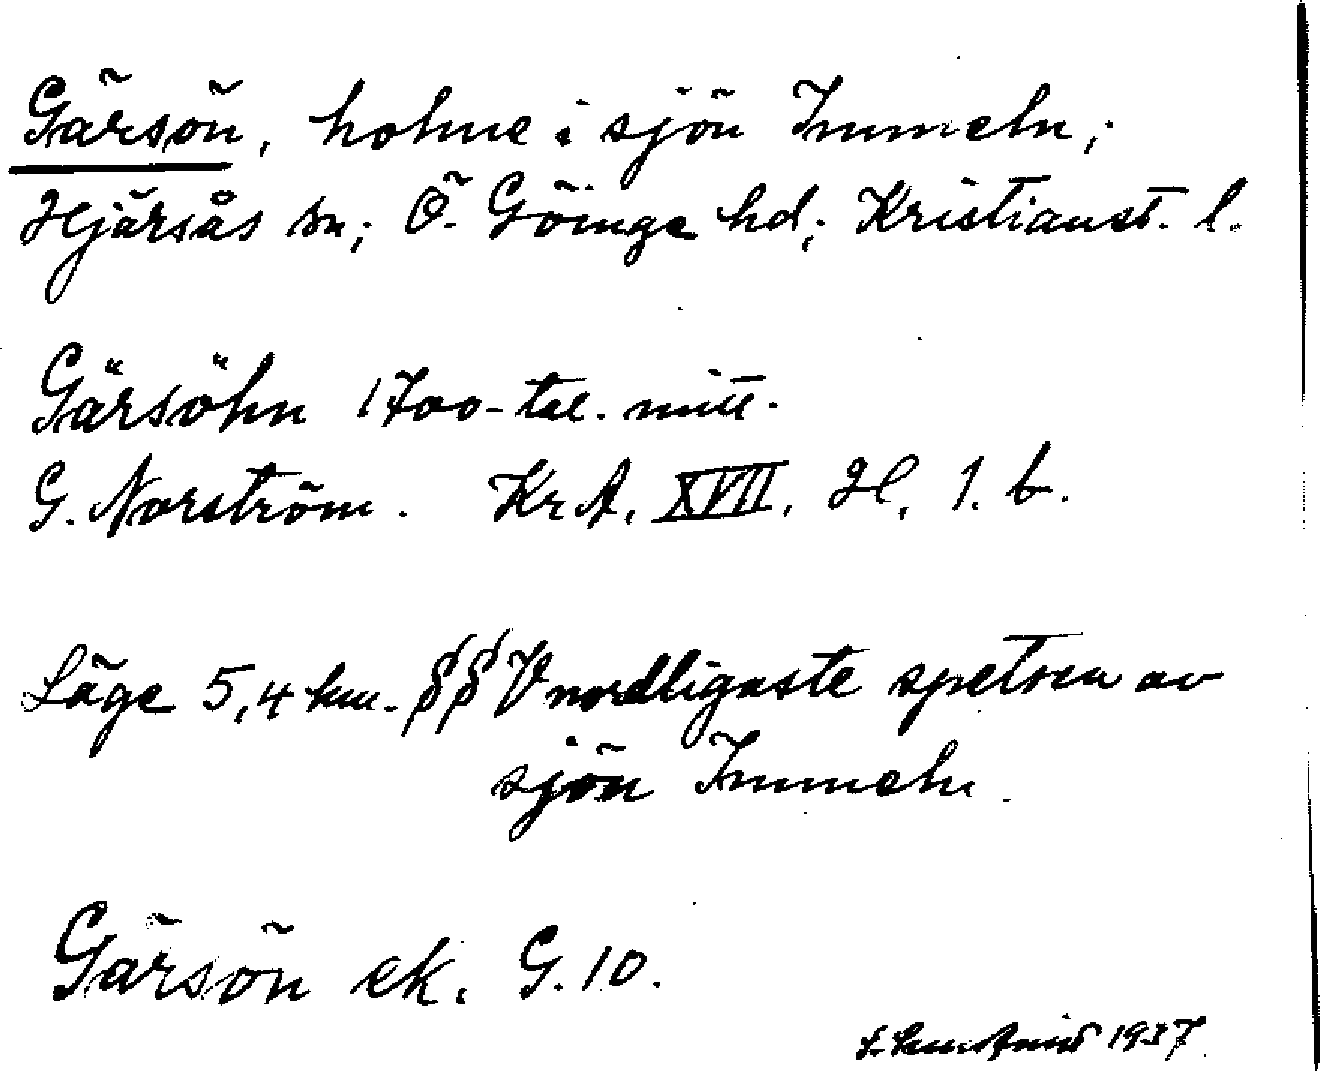 Gärsön, holme i sjön Immeln;
Hjärsås sn; Ö. Göinge hd; Kristianst. l.
Gärsöhn 1700-tal. mitt.
G. Norström. Kr A. XVII. H. 1. b.
Läge 5,4 km. SSV nordligaste spetsen av
sjön Immeln.
Gärsön ek. G. 10.
1937